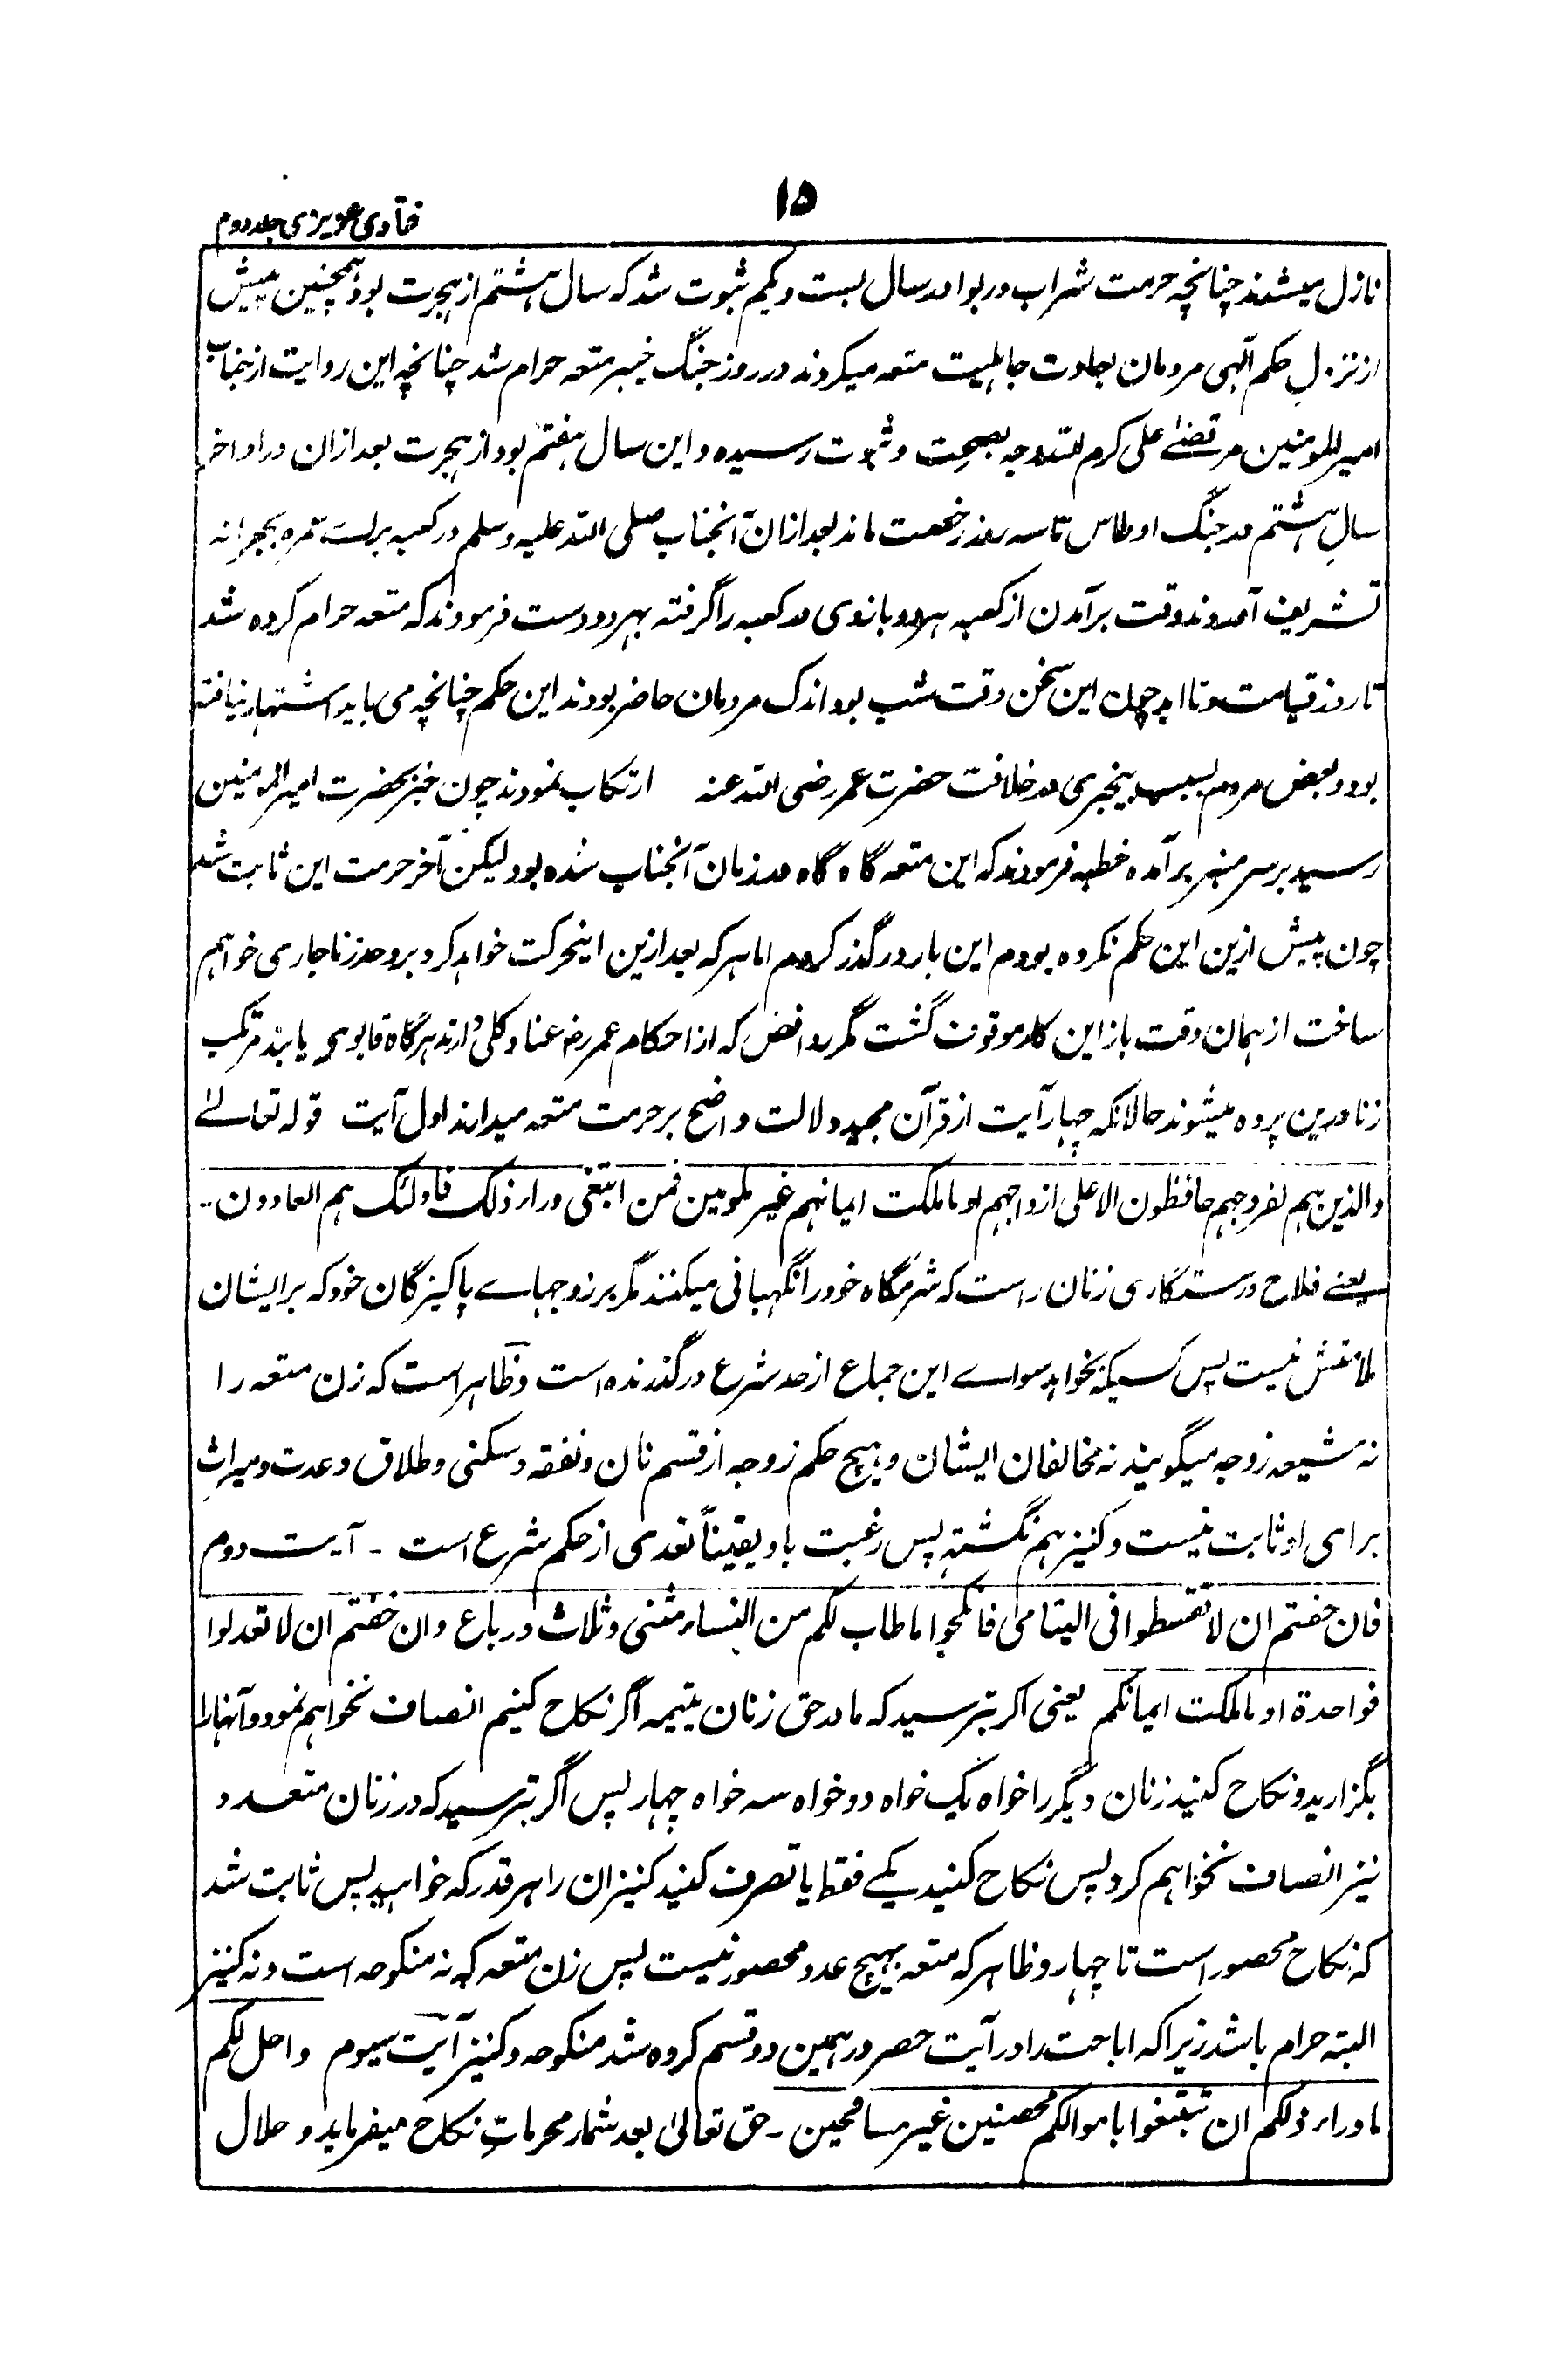 ۱۵
فتاوی عزیزی جلد دوم
نازل میشدند چنانچہ حرمت شراب و ربوا در سال بست و یکم ثبوت شد کہ سال ہشتم از ہجرت بود ہمچنین پیش
از نزول حکم آلہی مردمان بعادت جاہلیت متعہ میکردند در روز جنگ خیبر متعہ حرام شد چنانچہ این روایت از جناب
امیر المومنین مرتضےٰ علی کرم اللہ وجہہ بصحت و ثبوت رسیدہ و این سال ہفتم بود از ہجرت بعد ازان در اواخر
سالِ ہشتم در جنگ اوطاس تا سہ روز رخصت ماند بعد ازان آنجناب صلی اللہ علیہ وسلم در کعبہ براے عمرہ جعرانہ
تشریف آمدند و وقت برآمدن از کعبہ ہر دو بازوی در کعبہ را گرفتہ بہر دو دست فرمودند کہ متعہ حرام کردہ شد
تا روز قیامت و تا ابد چون این سخن وقت شب بود اندک مردمان حاضر بودند این حکم چنانچہ می باید اشتہار نیافتہ
بود و بعض مردم بسبب بیخبری در خلافت حضرت عمر رضی اللہ عنہ ارتکاب نمودند چون خبر بحضرت امیر المومنین
رسید بر سر منبر برآمدہ خطبہ فرمودند کہ این متعہ گاہ گاہ در زمان آنجناب شدہ بود لیکن آخر حرمت این ثابت شد
چون پیش ازین این حکم نکردہ بودم این بار درگذر کردم اما ہر کہ بعد ازین اینحرکت خواہد کرد برو حد زنا جاری خواہم
ساخت از ہمان وقت باز این کار موقوف گشت مگر روافض کہ از احکام عمر رضہ عناد کلی دارند ہرگاہ قابوے یابند مرتکب
زنا درین پردہ میشوند حالانکہ چہار آیت از قرآن مجید دلالت واضح بر حرمت متعہ میدارند اول آیت قولہ تعالےٰ
والذین ہم لفروجہم حافظون الا علی ازواجہم او ما ملکت ایمانہم غیر ملومین فمن ابتغی وراء ذلک فاولئک ہم العادون ۔۔
یعنے فلاح و رستگاری زنان راست کہ شرمگاہ خود را نگہبانی میکنند مگر بر زوجہاے پاکیزگان خود کہ بر ایشان
ملامتش نیست پس کسیکہ بخواہد سواے این جماع از حد شرع درگذرندہ است و ظاہر است کہ زن متعہ را
نہ شیعہ زوجہ میگویند نہ مخالفان ایشان و ہیچ حکم زوجہ از قسم نان و نفقہ و سکنی و طلاق و عدت و میراثِ
برای او ثابت نیست و کنیز ہم نگشتہ پس رغبت باو یقیناً تعدی از حکم شرع است ۔ آیت دوم
فان خفتم ان لا تقسطوا فی الیتامیٰ فانکحوا ما طاب لکم من النساء مثنی و ثلاث و رباع و ان خفتم ان لا تعدلوا
فواحدۃ او ما ملکت ایمانکم یعنی اگر بترسید کہ ما در حق زنان یتیمہ اگر نکاح کنیم انصاف نخواہم نمود و آنہا را
بگزارید و نکاح کنید زنان دیگر را خواہ یک خواہ دو خواہ سہ خواہ چہار پس اگر بترسید کہ در زنان متعدد
نیز انصاف نخواہم کرد پس نکاح کنید یکے فقط یا تصرف کنید کنیزان را ہر قدر کہ خواہید پس ثابت شد
کہ نکاح محصور است تا چہار و ظاہر کہ متعہ بہیچ عدد محصور نیست پس زن متعہ کہ نہ منکوحہ است و نہ کنیز
البتہ حرام باشد زیرا کہ اباحت را در آیت حصر در ہمین دو قسم کردہ شد منکوحہ و کنیز آیت سیوم و احل لکم
ما وراء ذلکم ان تبتغوا باموالکم محصنین غیر مسافحین ۔ حق تعالیٰ بعد شمار محرماتِ نکاح میفرماید و حلال